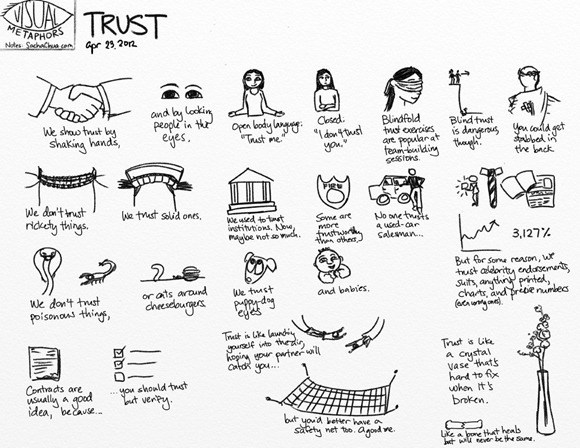 VISUAL
METAPHORS
Notes: SachaChua.com
TRUST
Apr 23, 2012
We show trust by
shaking hands,
and by looking
people in the
eyes.
Open body language:
"Trust me."
Closed:
"I don't trust
you."
Blindfold
trust exercises
are popular at
team-building
sessions.
Blind trust
is dangerous,
though.
You could get
stabbed in
the back.
We don't trust
rickety things.
We trust solid ones.
We used to trust
institutions. Now,
maybe not so much.
FIRE
Some are
more
trustworthy
than others.
No one trusts
a used-car
salesman...
3,127%
But for some reason, we
trust celebrity endorsements,
suits, anything printed,
charts, and precise numbers
(even wrong ones).
We don't trust
poisonous things,
or cats around
cheeseburgers.
We trust
puppy-dog
eyes
and babies.
Contracts are
usually a good
idea, because...
...you should trust
but verify.
Trust is like launching
yourself into the air,
hoping your partner will
catch you...
but you'd better have a
safety net too. A good one.
Trust is like
a crystal
vase that's
hard to fix
when it's
broken.
Like a bone that heals
but will never be the same.